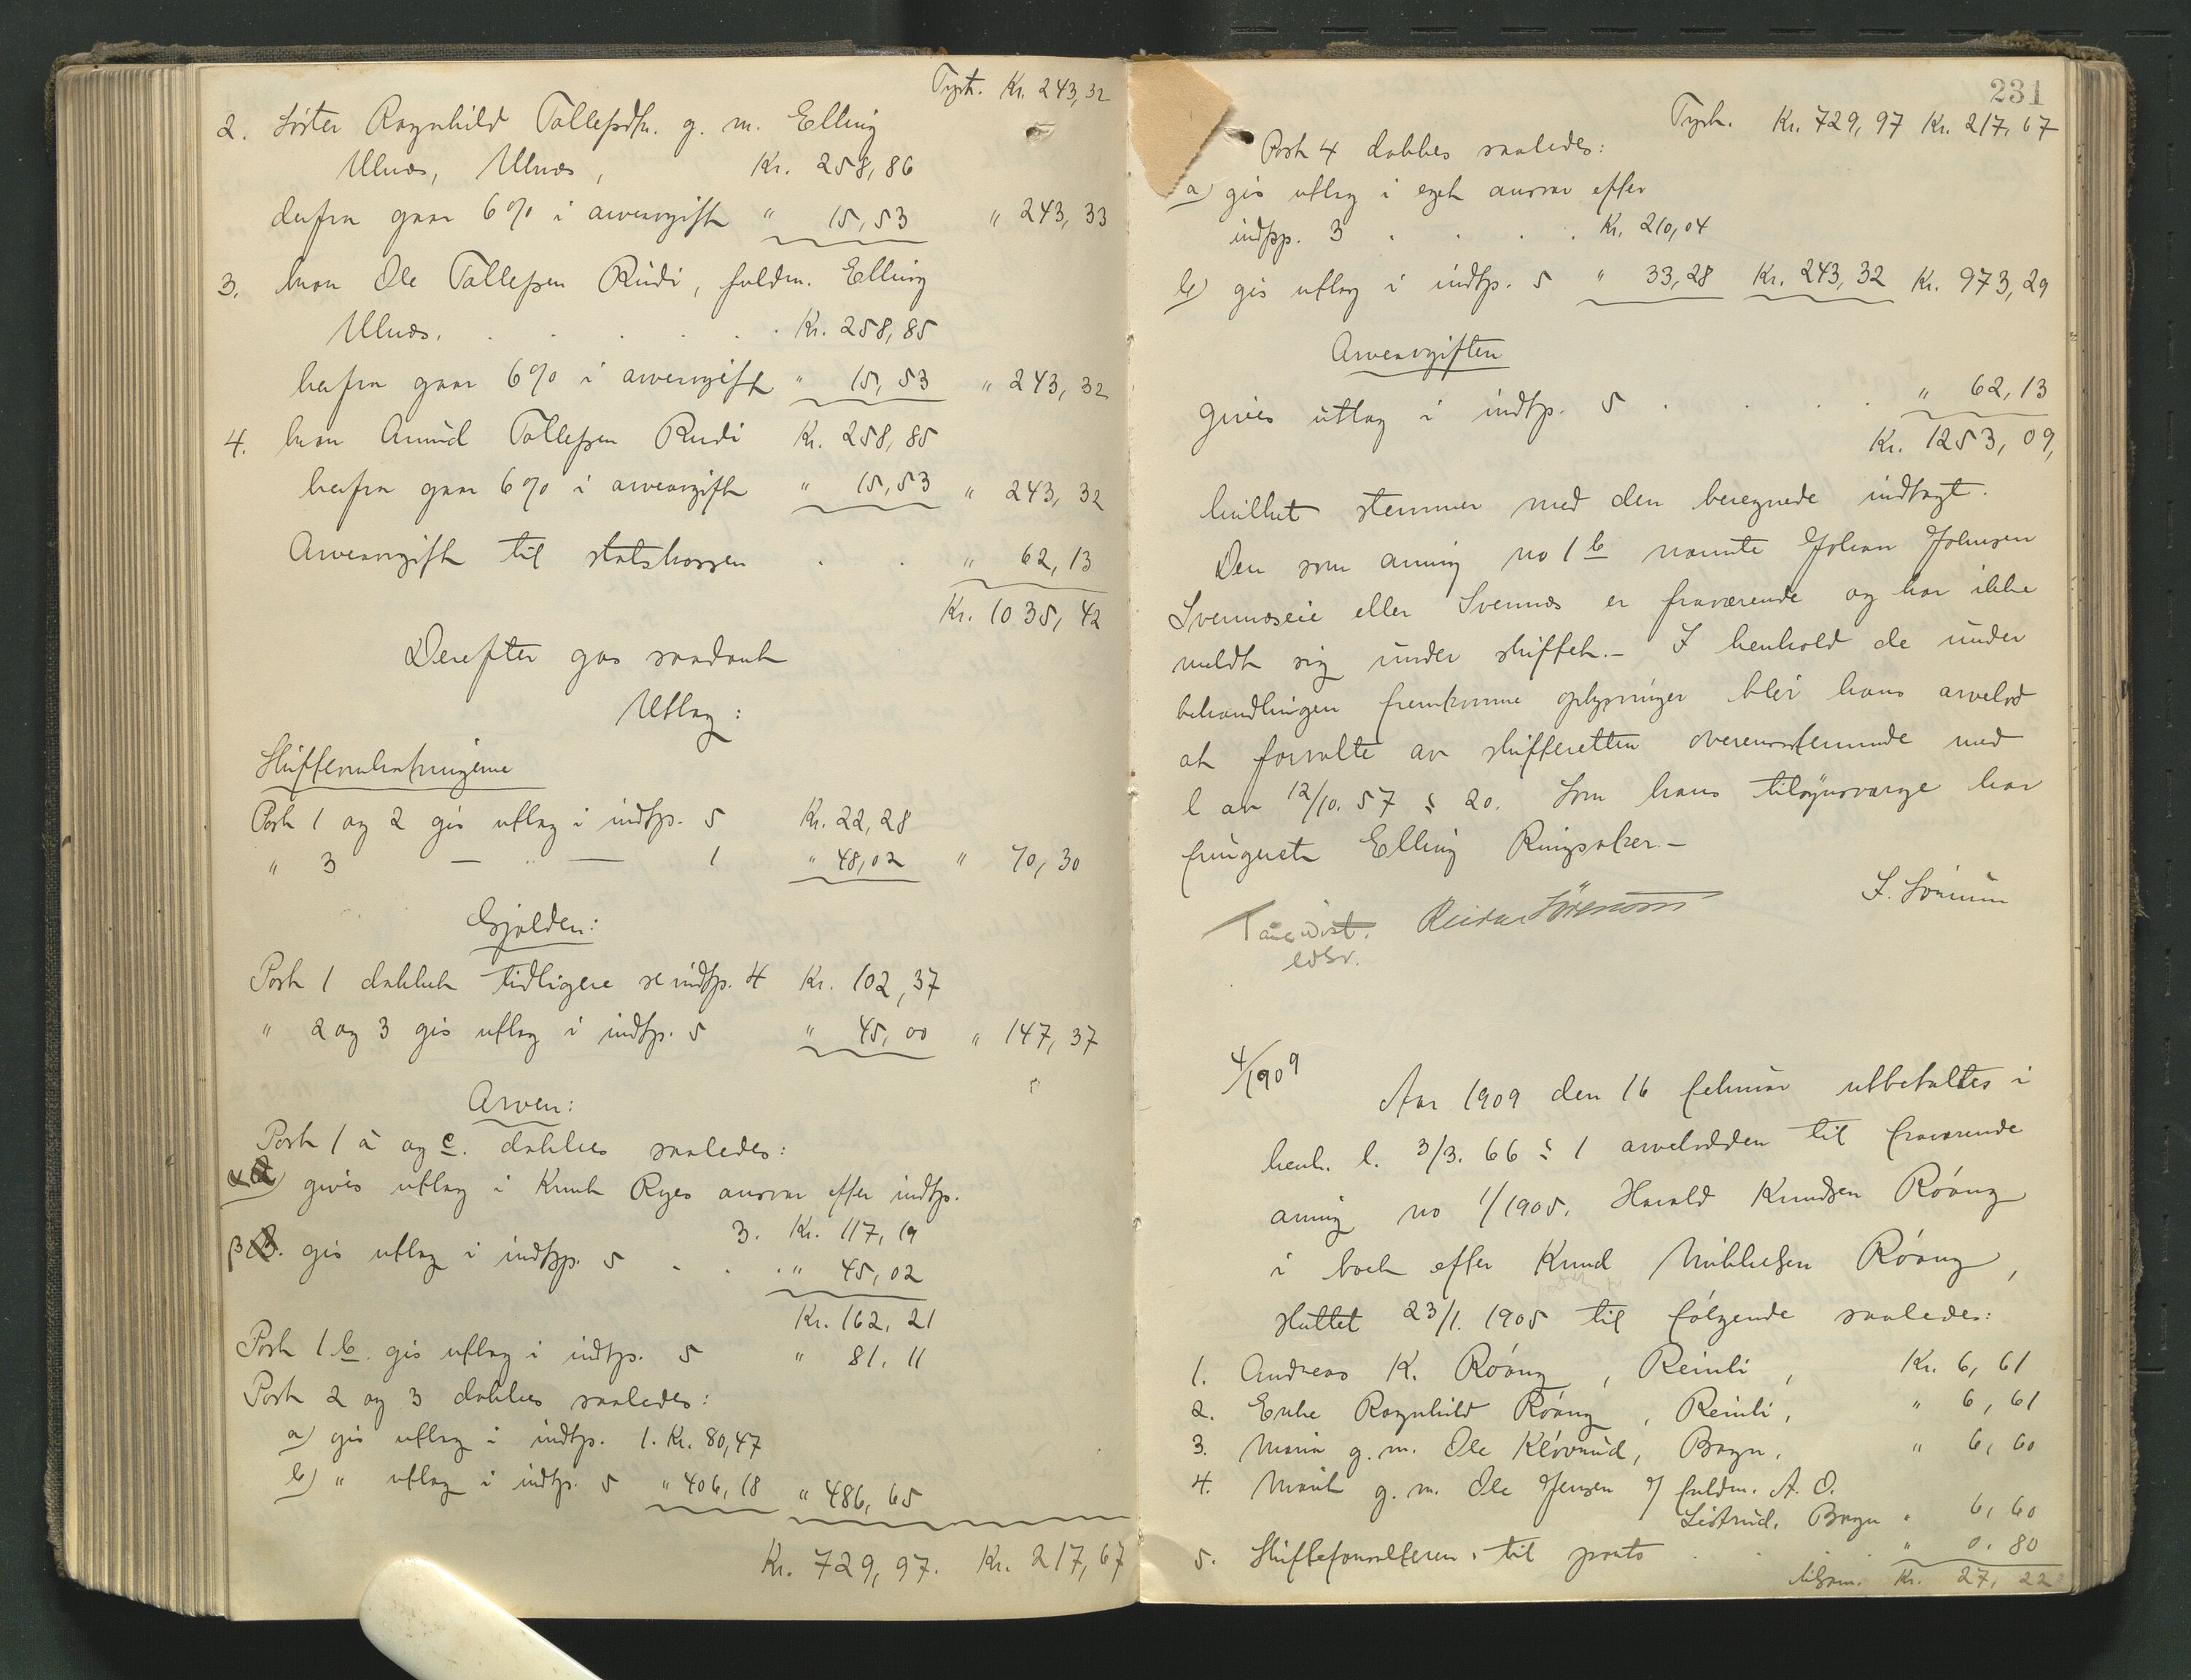 Trspt. Kr. 243,32
2. Søster Ragnhild Tollefsdtr. g. m. Elling
Ulnæs, Ulnæs, Kr. 258,86
derfra gaar 6% i arveavgift " 15,53 " 243,33
3. bror Ole Tollefsen Rudi, fuldm. Elling
Ulnæs. . . . . . Kr. 258,85
herfra gaar 6% i arveavgift " 15,53 " 243,32
4. bror Amund Tollefsen Rudi Kr. 258,85
herfra gaar 6% i arveavgift " 15,53 " 243,32
Arveavgift til statskassen . . " 62,13
Kr. 1035,42
Derefter gas saadant
Utlæg:
Skifteomkostningerne
Post 1 og 2 gis utlæg i indtp. 5 Kr. 22,28
" 3 — " — 1 " 48,02 " 70,30
Gjælden:
Post 1 dækket tidligere se indtp. 4 Kr. 102,37
" 2 og 3 gis utlæg i indtp. 5 " 45,00 " 147,37
Arven:
Post 1 a og c. dækkes saaledes:
α) gives utlæg i Knut Ryes ansvar efter indtp.
3. Kr. 117,19
β. gis utlæg i indtp. 5 . . . " 45,02
Kr. 162,21
Post 1 b. gis utlæg i indtp. 5 " 81,11
Post 2 og 3 dækkes saaledes:
a) gis utlæg i indtp. 1. Kr. 80,47
b) " utlæg i indtp. 5 " 406,18 " 486,65
Kr. 729,97. Kr. 217,67
231
Trspt. Kr. 729,97 Kr. 217,67
Post 4 dækkes saaledes:
a) gis utlæg i eget ansvar efter
indtp. 3 . . . . Kr. 210,04
b) gis utlæg i indtp. 5 " 33,28 Kr. 243,32 Kr. 973,29
Arveavgiften
gives utlæg i indtp. 5 . . . . " 62,13
Kr. 1253,09,
hvilket stemmer med den beregnede indtægt.
Den som arving no 1 b nævnte Johan Johnsen
Svennæseie eller Svennæs er fraværende og har ikke
meldt sig under skiftet. - I henhold de under
behandlingen fremkomne oplysninger blir hans arvelod
at forvalte av skifteretten overensstemmende med
l av 12/10. 57 § 20. Som hans tilsynsværge har
fungeret Elling Ringsaker. -
Reidar Sørenssen
edsv.
4/1909
Aar 1909 den 16 februar utbetaltes i
henh. l. 3/3. 66 § 1 arvelodden til fraværende
arving no 1/1905. Harald Knudsen Røang
i boet efter Knud Mikkelsen Røang,
sluttet 23/1. 1905 til følgende saaledes:
1. Andreas K. Røang, Reinli, Kr. 6,61
2. Enke Ragnhild Røang, Reinli, " 6,61
3. Maria g. m. Ole Kløvrud, Bagn, " 6,60
4. Marit g. m. Ole Jensen v/ fuldm. A. O.
Bagn " 6,60
5. Skifteforvalteren, til porto . . . " 0,80
tilsam. Kr. 27,22